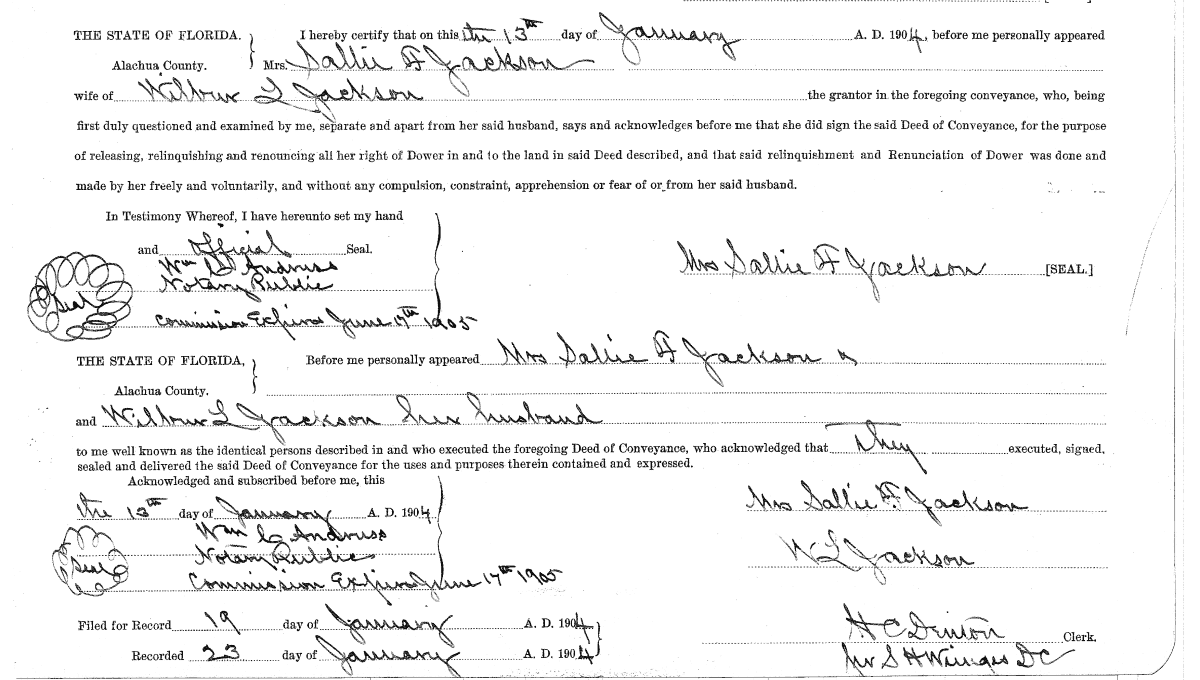 THE STATE OF FLORIDA. } I hereby certify that on this the 13th day of January A. D. 1904, before me personally appeared
Alachua County. Mrs. Sallie F Jackson
wife of Wilbur L Jackson the grantor in the foregoing conveyance, who, being
first duly questioned and examined by me, separate and apart from her said husband, says and acknowledges before me that she did sign the said Deed of Conveyance, for the purpose
of releasing, relinquishing and renouncing all her right of Dower in and to the land in said Deed described, and that said relinquishment and Renunciation of Dower was done and
made by her freely and voluntarily, and without any compulsion, constraint, apprehension or fear of or from her said husband.
In Testimony Whereof, I have hereunto set my hand
and official Seal.
Wm C Andruss
Mrs Sallie F Jackson [SEAL.]
Notary Public
Seal
Commission Expires June 17th 1905
THE STATE OF FLORIDA, } Before me personally appeared Mrs Sallie F Jackson
Alachua County.
and Wilbur L Jackson her husband
to me well known as the identical persons described in and who executed the foregoing Deed of Conveyance, who acknowledged that They executed, signed,
sealed and delivered the said Deed of Conveyance for the uses and purposes therein contained and expressed.
Acknowledged and subscribed before me, this
the 13th day of January A. D. 1904
Mrs Sallie F. Jackson
Wm C Andruss
Notary Public
W L Jackson
Seal
Commission Expires June 17th 1905
Filed for Record 19 day of January A. D. 1904
H C Denton Clerk.
Recorded 23 day of January A. D. 1904
S H Wienges DC